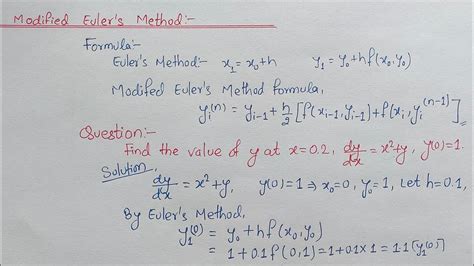 Modified Euler's Method:-
Formula:-
Euler's Method:- x₁ = x₀+h y₁ = y₀+hf(x₀,y₀)
Modifed Euler's Method Formula,
yᵢ⁽ⁿ⁾ = yᵢ₋₁ + h/2 [f(xᵢ₋₁,yᵢ₋₁)+f(xᵢ,yᵢ⁽ⁿ⁻¹⁾)]
Question:-
Find the value of y at x=0.2, dy/dx = x²+y, y(0)=1.
Solution,
dy/dx = x²+y, y(0)=1 ⇒ x₀=0, y₀=1, Let h=0.1,
By Euler's Method,
y₁⁽⁰⁾ = y₀+hf(x₀,y₀)
= 1+0.1f(0,1)=1+0.1×1=1.1 (y₁⁽⁰⁾)